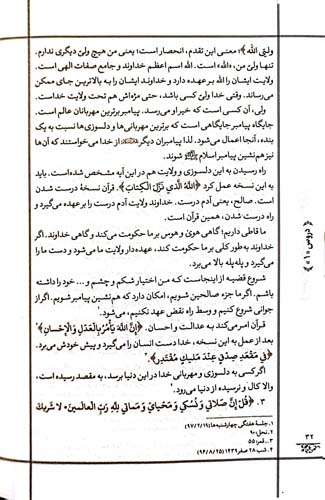 ولیّی الله﴾؛ معنی این تقدم، انحصار است؛ یعنی من هیچ ولیّ دیگری ندارم.
تنها ولیّ من، «الله» است. الله اسم اعظم خداوند و جامع صفات الهی است.
ولایت ایشان را الله بر عهده دارد و خداوند ایشان را به بالاترین جای ممکن
می‌رساند. وقتی خدا ولیّ کسی باشد، حتی مژه‌اش هم تحت ولایت خداست.
ولی، آن کسی است که خیر او می‌رسد. پیامبر برترین مهربانان عالم است.
جایگاه پیامبر جایگاهی است که برترین مهربانی‌ها و دلسوزی‌ها نسبت به یک
بنده، آنجا اعمال می‌شود. لذا پیامبران دیگر از خدا می‌خواستند که آن‌ها
نیز هم‌نشین پیامبر اسلام شوند.
راه رسیدن به این دلسوزی و ولایت هم در این آیه مشخص شده‌است. باید
به این نسخه عمل کرد ﴿اللهُ الَّذي نَزَّلَ الْكِتابَ﴾. قرآن نسخهٔ درست شدن
است. صالح، یعنی آدم درست. خداوند ولایت آدم درست را برعهده می‌گیرد و
راه درست شدن، همین قرآن است.
ما قاطی داریم؛ گاهی هویٰ و هوس بر ما حکومت می‌کند و گاهی خداوند. اگر
خداوند به طور کلی بر ما حکومت کند، عهده‌دار ولایت ما می‌شود و دست ما را
می‌گیرد و پله پله بالا می‌برد.
شروع قضیه از اینجاست کـه مـن اختیار شکم و چشم و ... خود را داشته
باشم. اگر ما جزء صالحین شویم، امکان دارد که هم‌نشین پیامبر شویم. اگر از
جوانی شروع کنیم و وسط راه نقض عهد نکنیم، می‌شود.¹
قرآن امر می‌کند بـه عدالت و احسان. ﴿إِنَّ اللهَ يَأْمُرُ بِالْعَدْلِ وَ الْإِحْسانِ﴾²
بعد از عمل به این نسخه، خدا دست انسان را می‌گیرد و پیش خودش می‌برد.
﴿في مَقْعَدِ صِدْقٍ عِنْدَ مَليكٍ مُقْتَدِرٍ﴾.³
اگر کسی به دلسوزی و مهربانی خدا در این دنیا برسد، به مقصد رسیده است.
والا کال و نرسیده از دنیا می‌رود.⁴
۳. ﴿قُلْ إِنَّ صَلاتي وَ نُسُكي وَ مَحْيايَ وَ مَماتي لِلَّهِ رَبِّ الْعالَمينَ٭ لا شَريكَ
۱. جلسهٔ هفتگی چهارشنبه‌ها (۹۷/۲/۱۹)
۲. نحل: ۹۰
۳. قمر: ۵۵
۴. شب ۲۸ صفر ۱۴۳۹ (۹۶/۸/۲۵)
﴿ دروس «۱» ﴾
۳۲